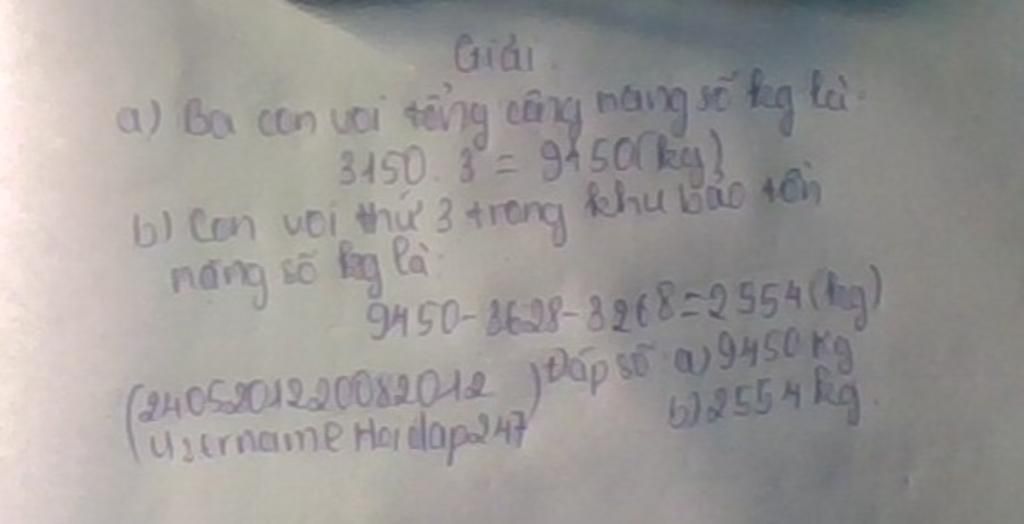 Giải.
a) Ba con voi tổng cộng nặng số kg là:
3150 . 3 = 9450 (kg)
b) Con voi thứ 3 trong khu bảo tồn
nặng số kg là:
9450 - 3628 - 3268 = 2554 (kg)
Đáp số a) 9450 kg
b) 2554 kg.
(2405201220082012)
(Username Hoidap247)